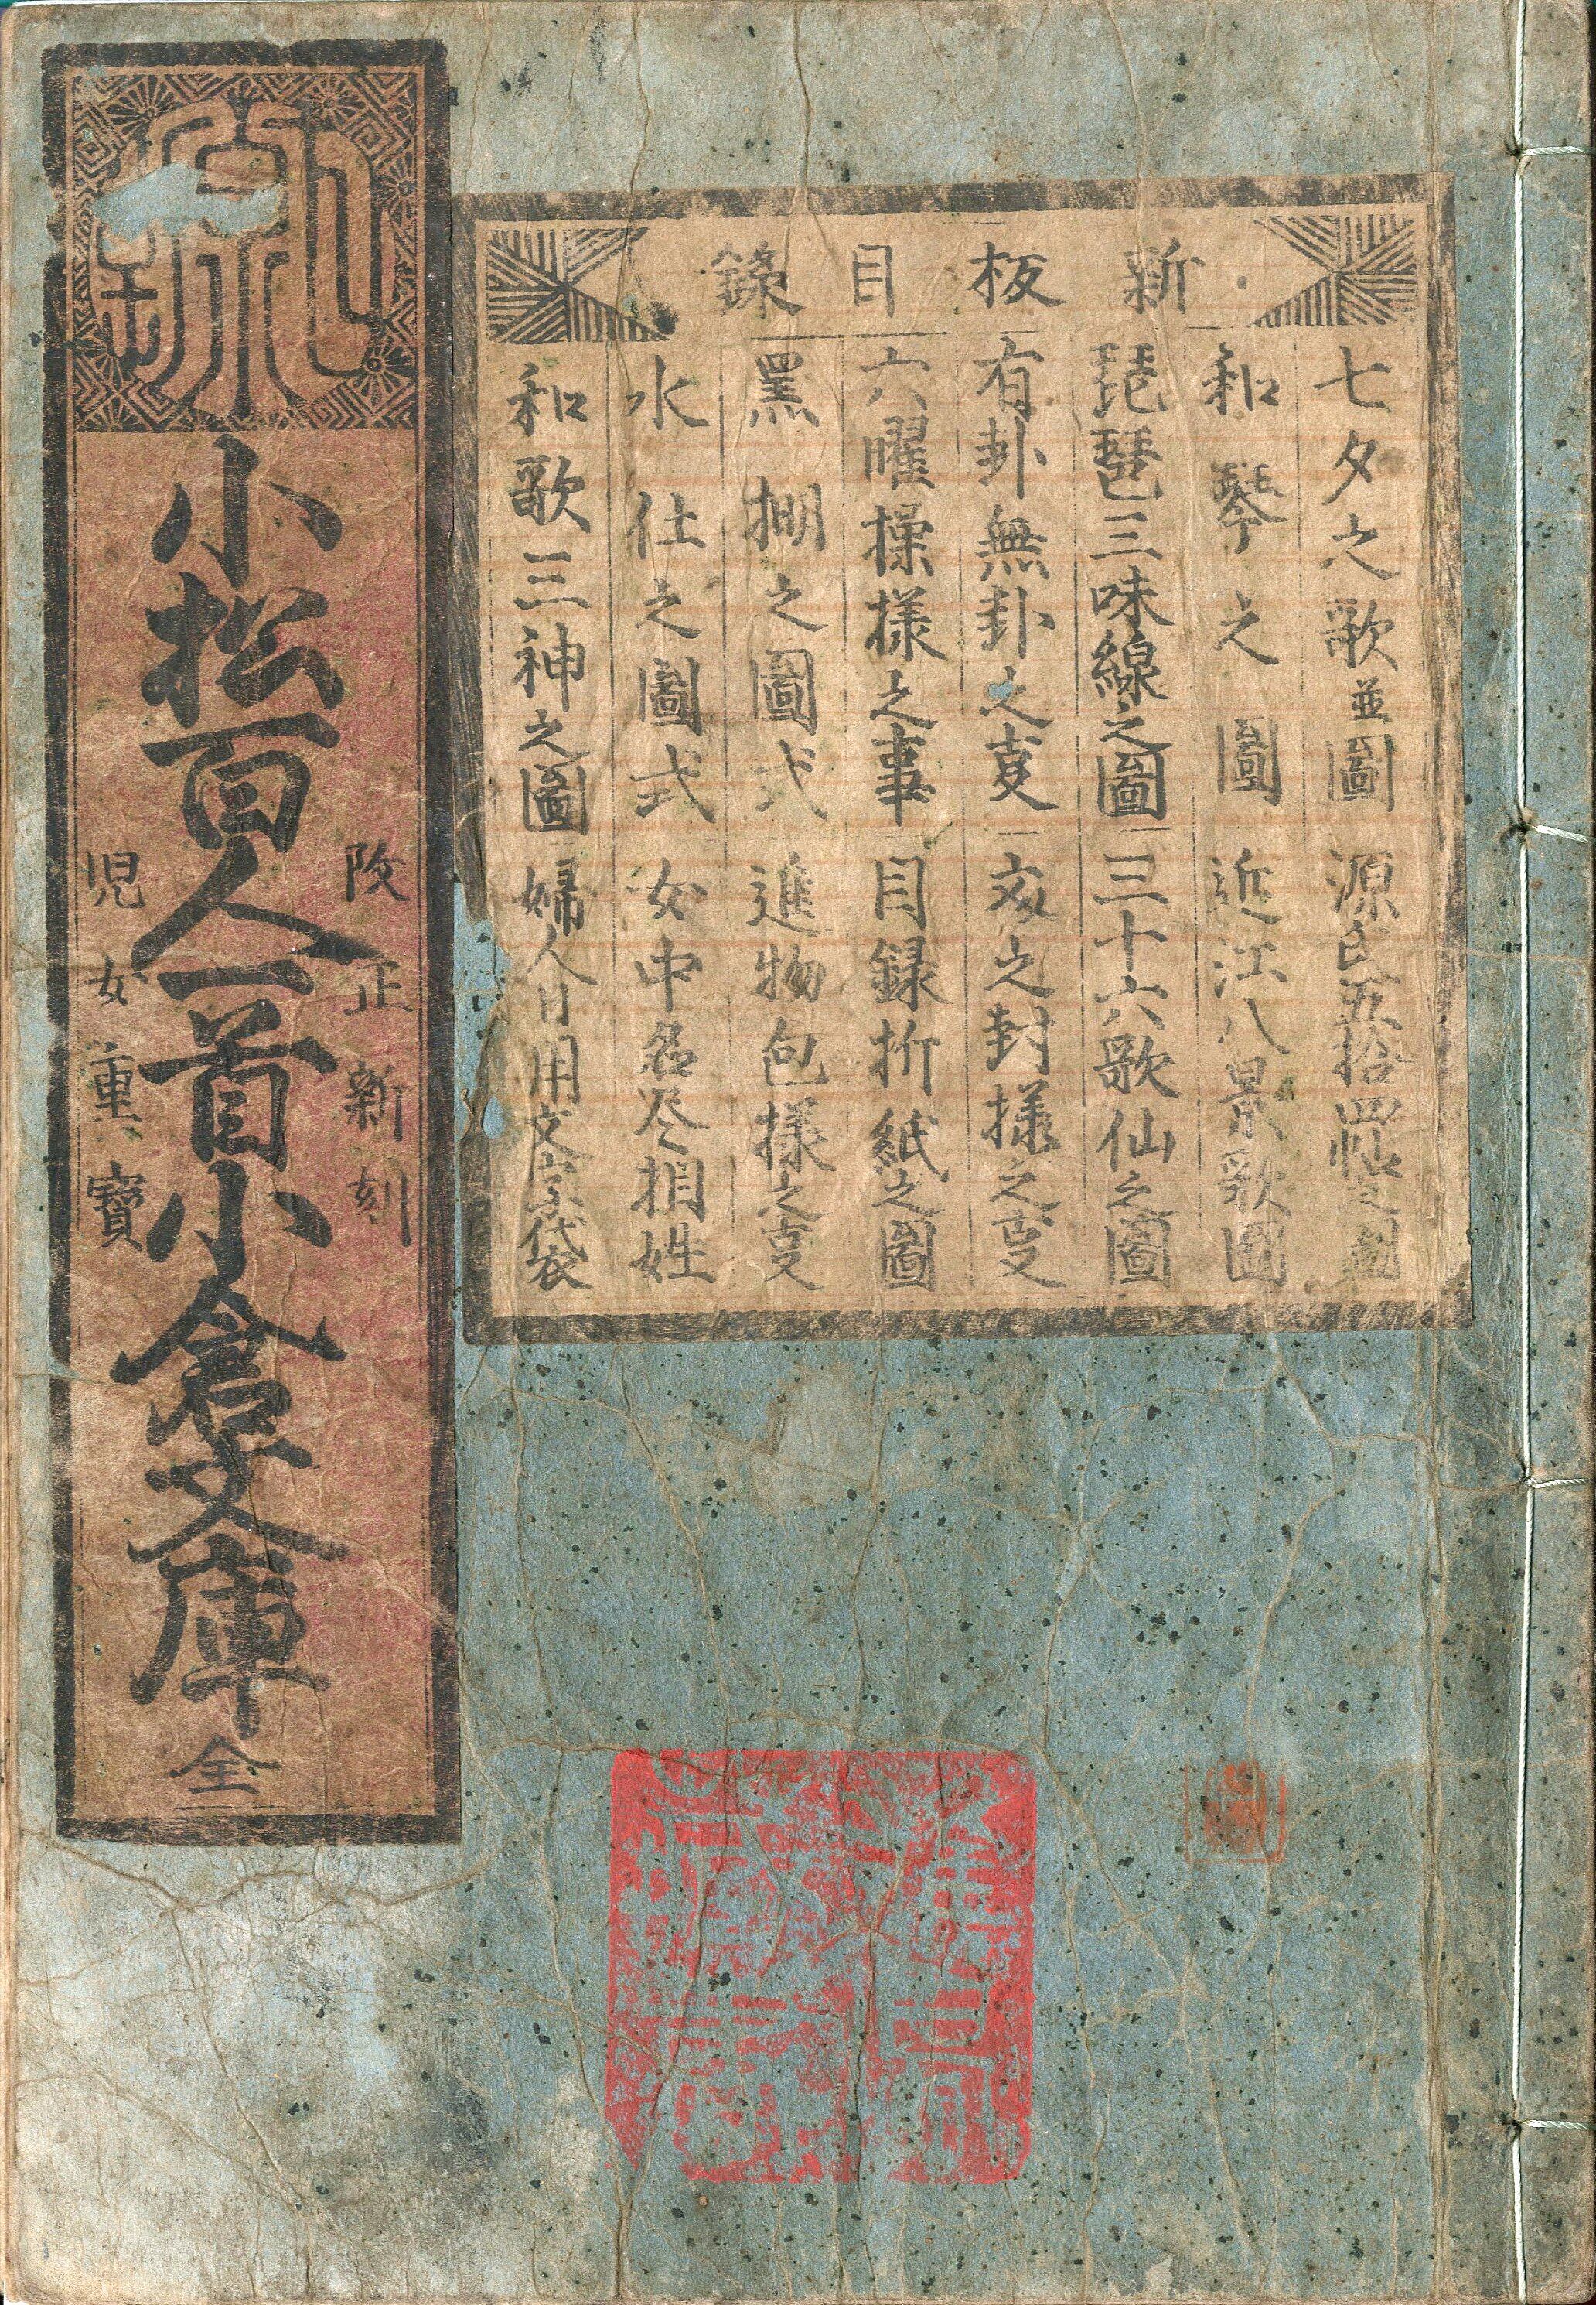 新板目錄
七夕之歌並圖
源氏五拾四帖之圖
和琴之圖
近江八景歌圖
琵琶三味線之圖
三十六歌仙之圖
有卦無卦之叓
文之封様之叓
六曜操様之事
目録折紙之圖
黑棚之圖式
進物包様之叓
水仕之圖式
女中名尽相姓
和歌三神之圖
婦人日用文字袋
改正新刻
小松百人一首小倉文庫全
児女重寳